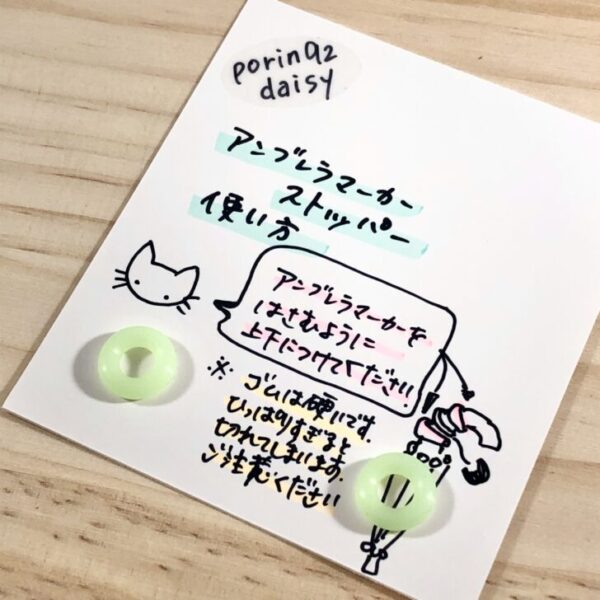 porin92
daisy
アンブレラマーカー
ストッパー
使い方
アンブレラマーカーを
はさむように
上下につけてください
※ ゴムは硬いです.
ひっぱりすぎると
切れてしまいます.
ご注意ください